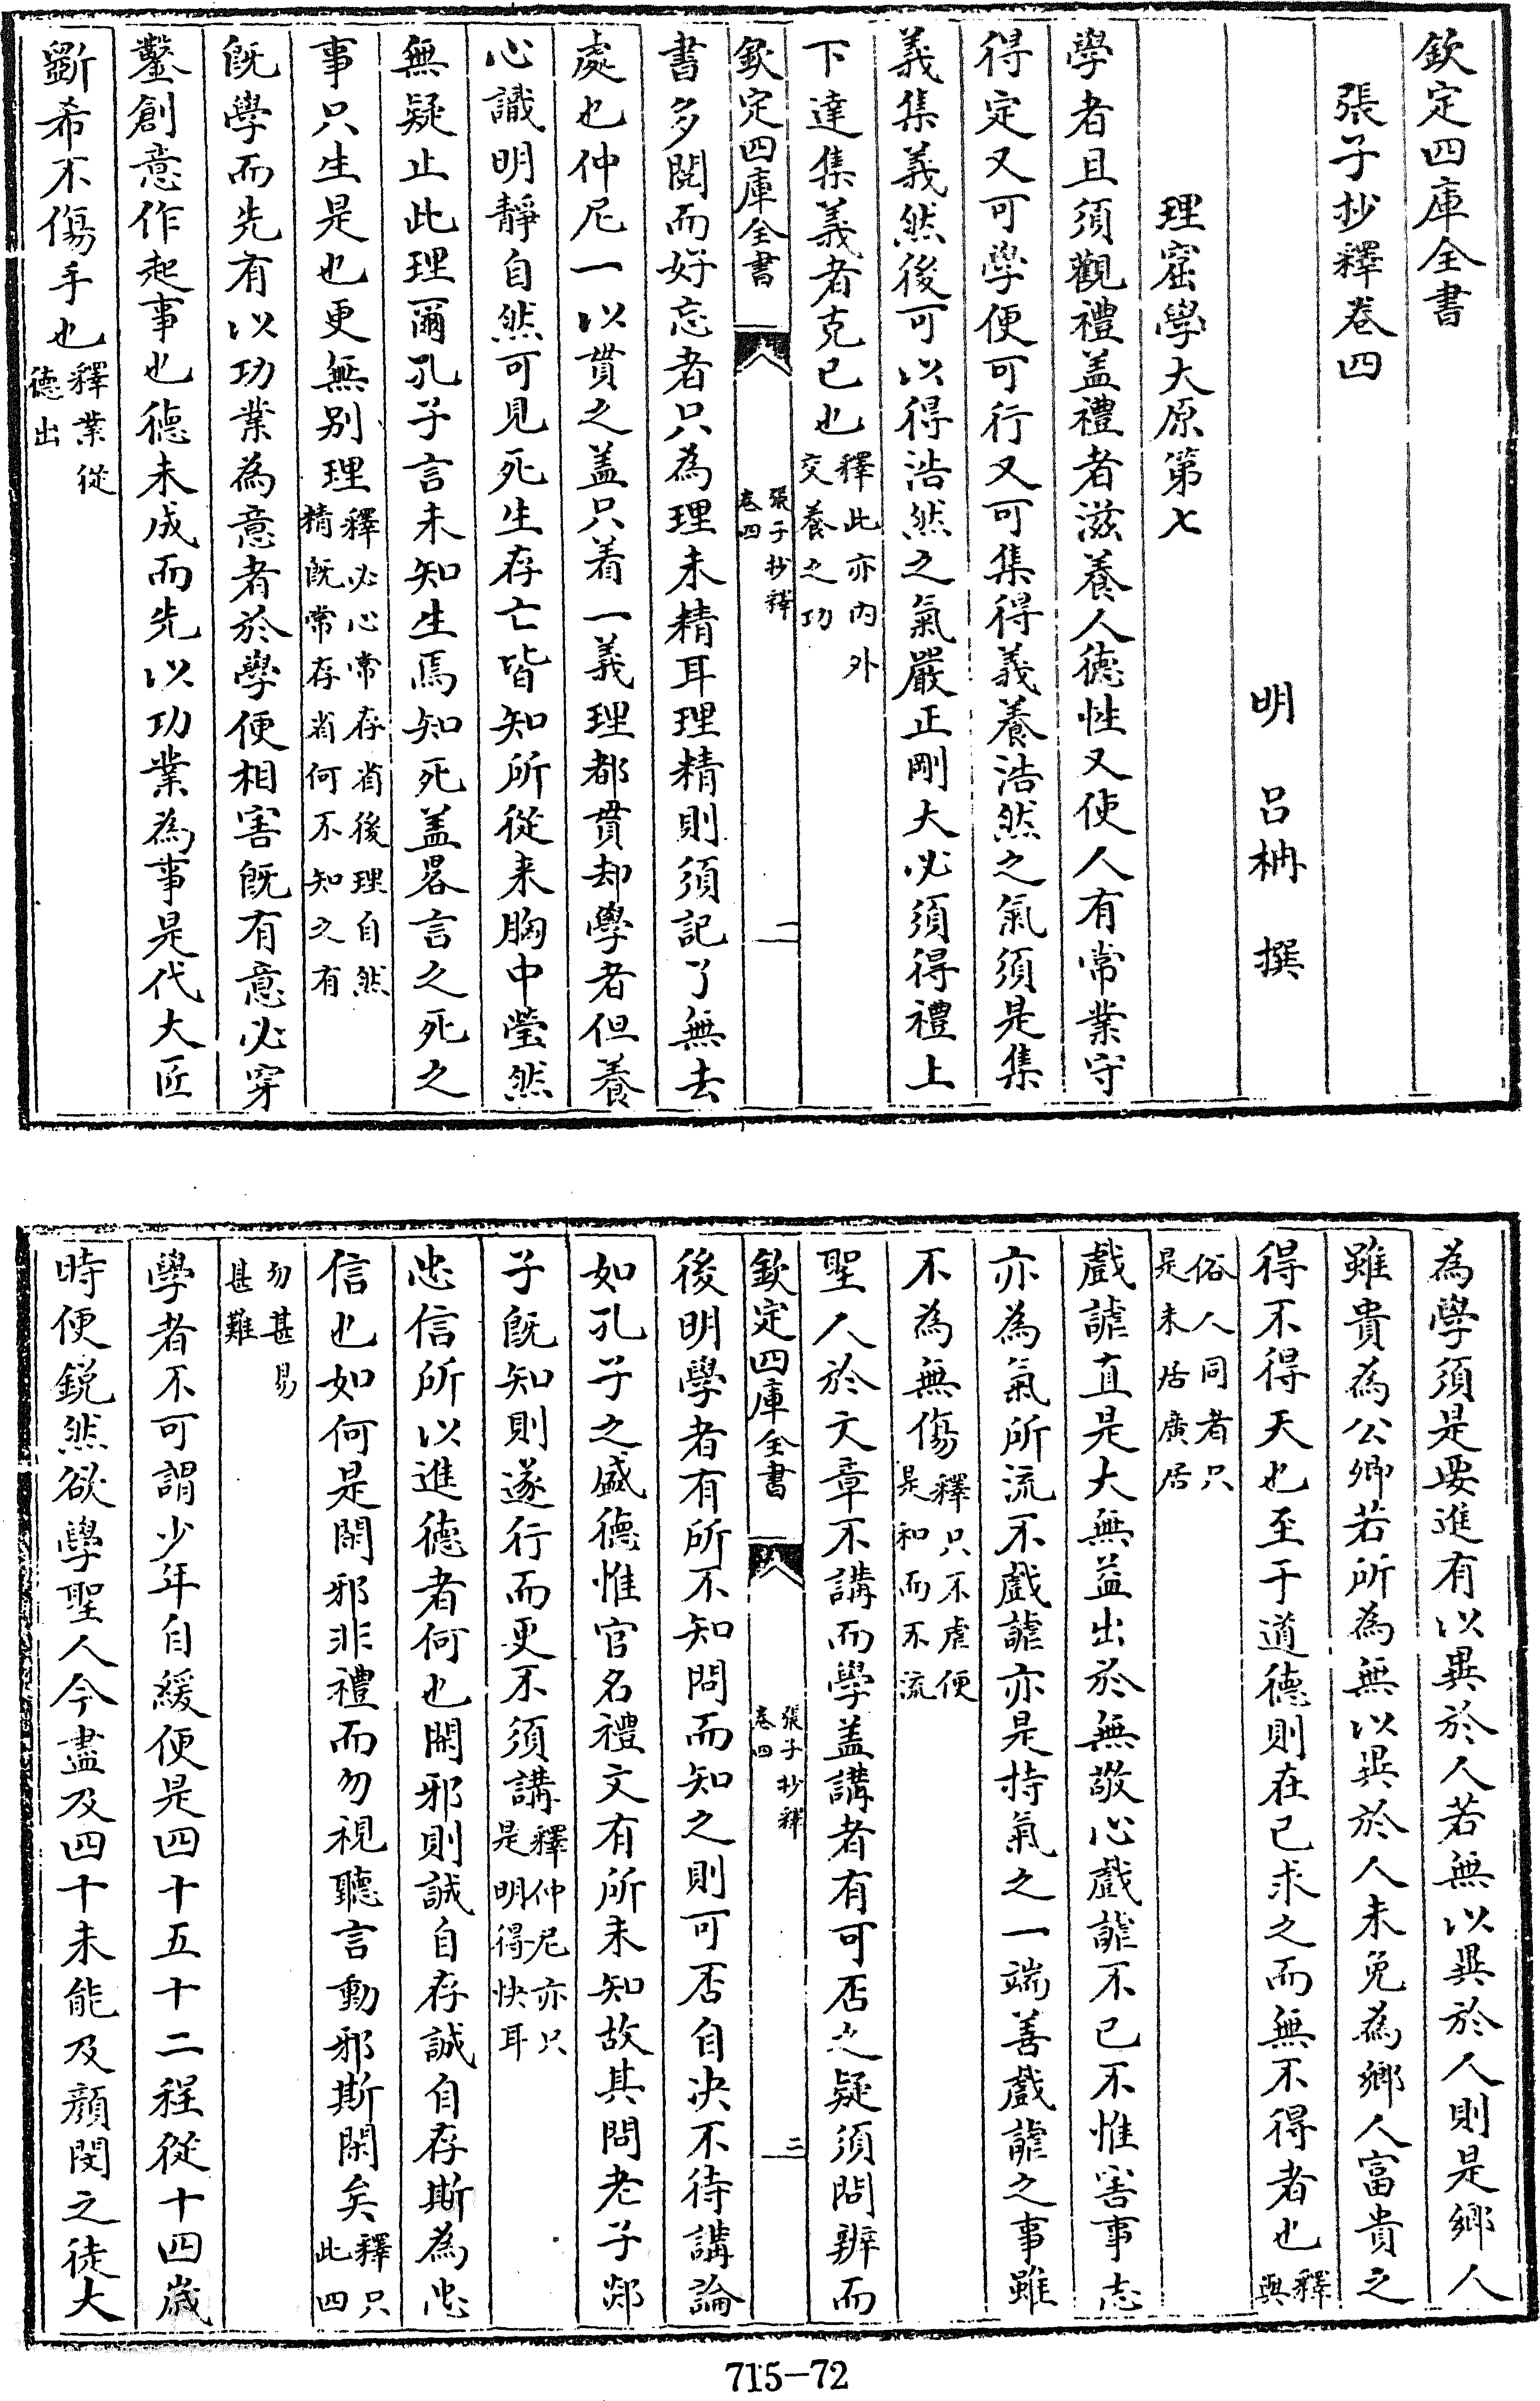 欽定四庫全書
張子抄釋卷四
明　呂柟　撰
理窟學大原第七
學者且須觀禮盖禮者滋養人德性又使人有常業守
得定又可學便可行又可集得義養浩然之氣須是集
義集義然後可以得浩然之氣嚴正剛大必須得禮上
下達集義者克已也釋此亦内外交養之功
欽定四庫全書　張子抄釋卷四　二
書多閱而好忘者只為理未精耳理精則須記了無去
處也仲尼一以貫之盖只着一義理都貫却學者但養
心識明靜自然可見死生存亡皆知所從来胸中瑩然
無疑止此理爾孔子言未知生焉知死盖畧言之死之
事只生是也更無别理釋必心常存省後理自然精既常存省何不知之有
既學而先有以功業為意者於學便相害既有意必穿
鑿創意作起事也德未成而先以功業為事是代大匠
斲希不傷手也釋業從德出
為學須是要進有以異於人若無以異於人則是鄉人
雖貴為公卿若所為無以異於人未免為鄉人富貴之
得不得天也至于道德則在已求之而無不得者也釋與
俗人同者只是未居廣居
戲謔直是大無益出於無敬心戲謔不已不惟害事志
亦為氣所流不戲謔亦是持氣之一端善戲謔之事雖
不為無傷釋只不虐便是和而不流
聖人於文章不講而學盖講者有可否之疑須問辨而
欽定四庫全書　張子抄釋卷四　三
後明學者有所不知問而知之則可否自决不待講論
如孔子之盛德惟官名禮文有所未知故其問老子郯
子既知則遂行而更不須講釋仲尼亦只是明得快耳
忠信所以進德者何也閑邪則誠自存誠自存斯為忠
信也如何是閑邪非禮而勿視聽言動邪斯閑矣釋只此四
勿甚易甚難
學者不可謂少年自緩便是四十五十二程從十四歲
時便鋭然欲學聖人今盡及四十未能及顔閔之徒大
715-72